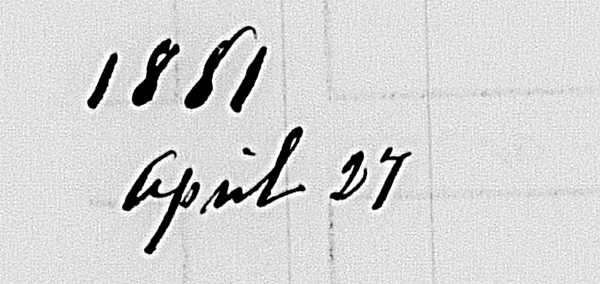 1881
April 27